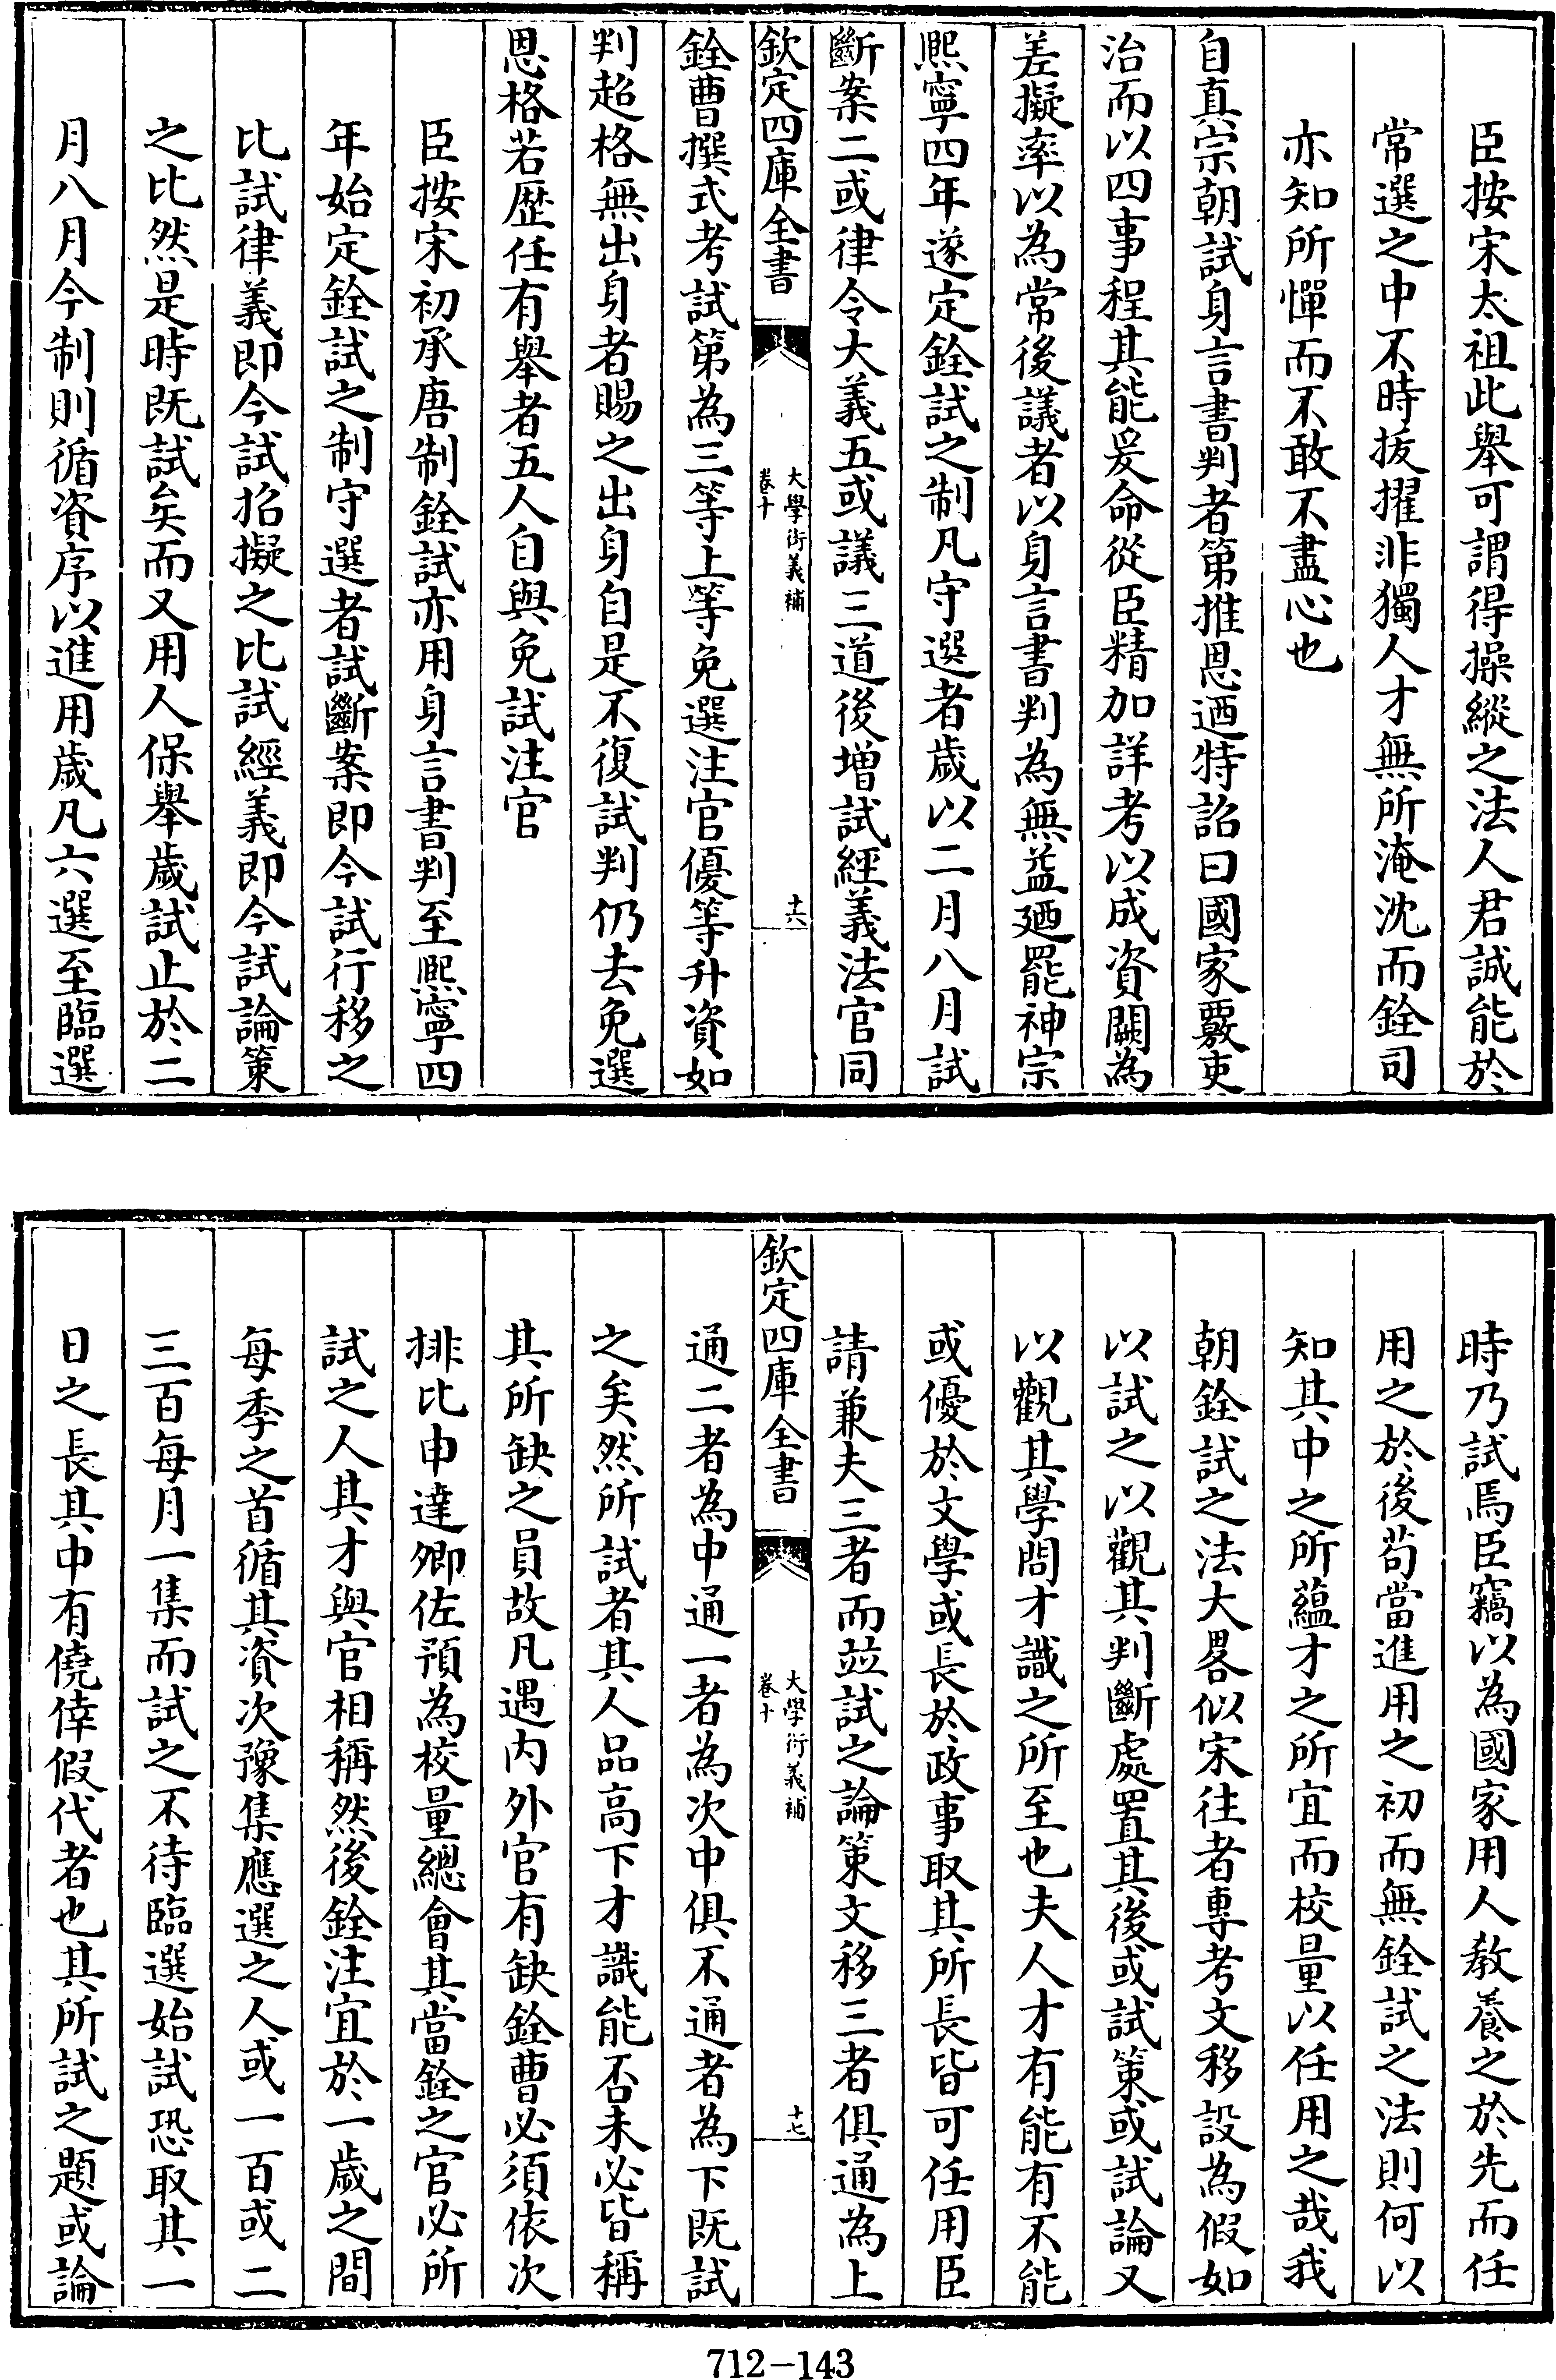 臣按宋太祖此舉可謂得操縱之法人君誠能於
常選之中不時拔擢非獨人才無所淹沈而銓司
亦知所憚而不敢不盡心也
自真宗朝試身言書判者第推恩迺特詔曰國家覈吏
治而以四事程其能爰命從臣精加詳考以成資闕為
差擬率以為常後議者以身言書判為無益廼罷神宗
熙寧四年遂定銓試之制凡守選者歲以二月八月試
斷案二或律令大義五或議三道後增試經義法官同
欽定四庫全書
大學衍義補
卷十
十六
銓曹撰式考試第為三等上等免選注官優等升資如
判超格無出身者賜之出身自是不復試判仍去免選
恩格若歷任有舉者五人自與免試注官
臣按宋初承唐制銓試亦用身言書判至熙寧四
年始定銓試之制守選者試斷案即今試行移之
比試律義即今試招擬之比試經義即今試論策
之比然是時既試矣而又用人保舉歲試止於二
月八月今制則循資序以進用歲凡六選至臨選
時乃試焉臣竊以為國家用人教養之於先而任
用之於後茍當進用之初而無銓試之法則何以
知其中之所蘊才之所宜而校量以任用之哉我
朝銓試之法大畧似宋往者專考文移設為假如
以試之以觀其判斷處置其後或試策或試論又
以觀其學問才識之所至也夫人才有能有不能
或優於文學或長於政事取其所長皆可任用臣
請兼夫三者而並試之論策文移三者俱通為上
欽定四庫全書
大學衍義補
卷十
十七
通二者為中通一者為次中俱不通者為下既試
之矣然所試者其人品高下才識能否未必皆稱
其所缺之員故凡遇内外官有缺銓曹必須依次
排比申達卿佐預為校量總會其當銓之官必所
試之人其才與官相稱然後銓注宜於一歲之間
每季之首循其資次豫集應選之人或一百或二
三百每月一集而試之不待臨選始試恐取其一
日之長其中有僥倖假代者也其所試之題或論
712-143